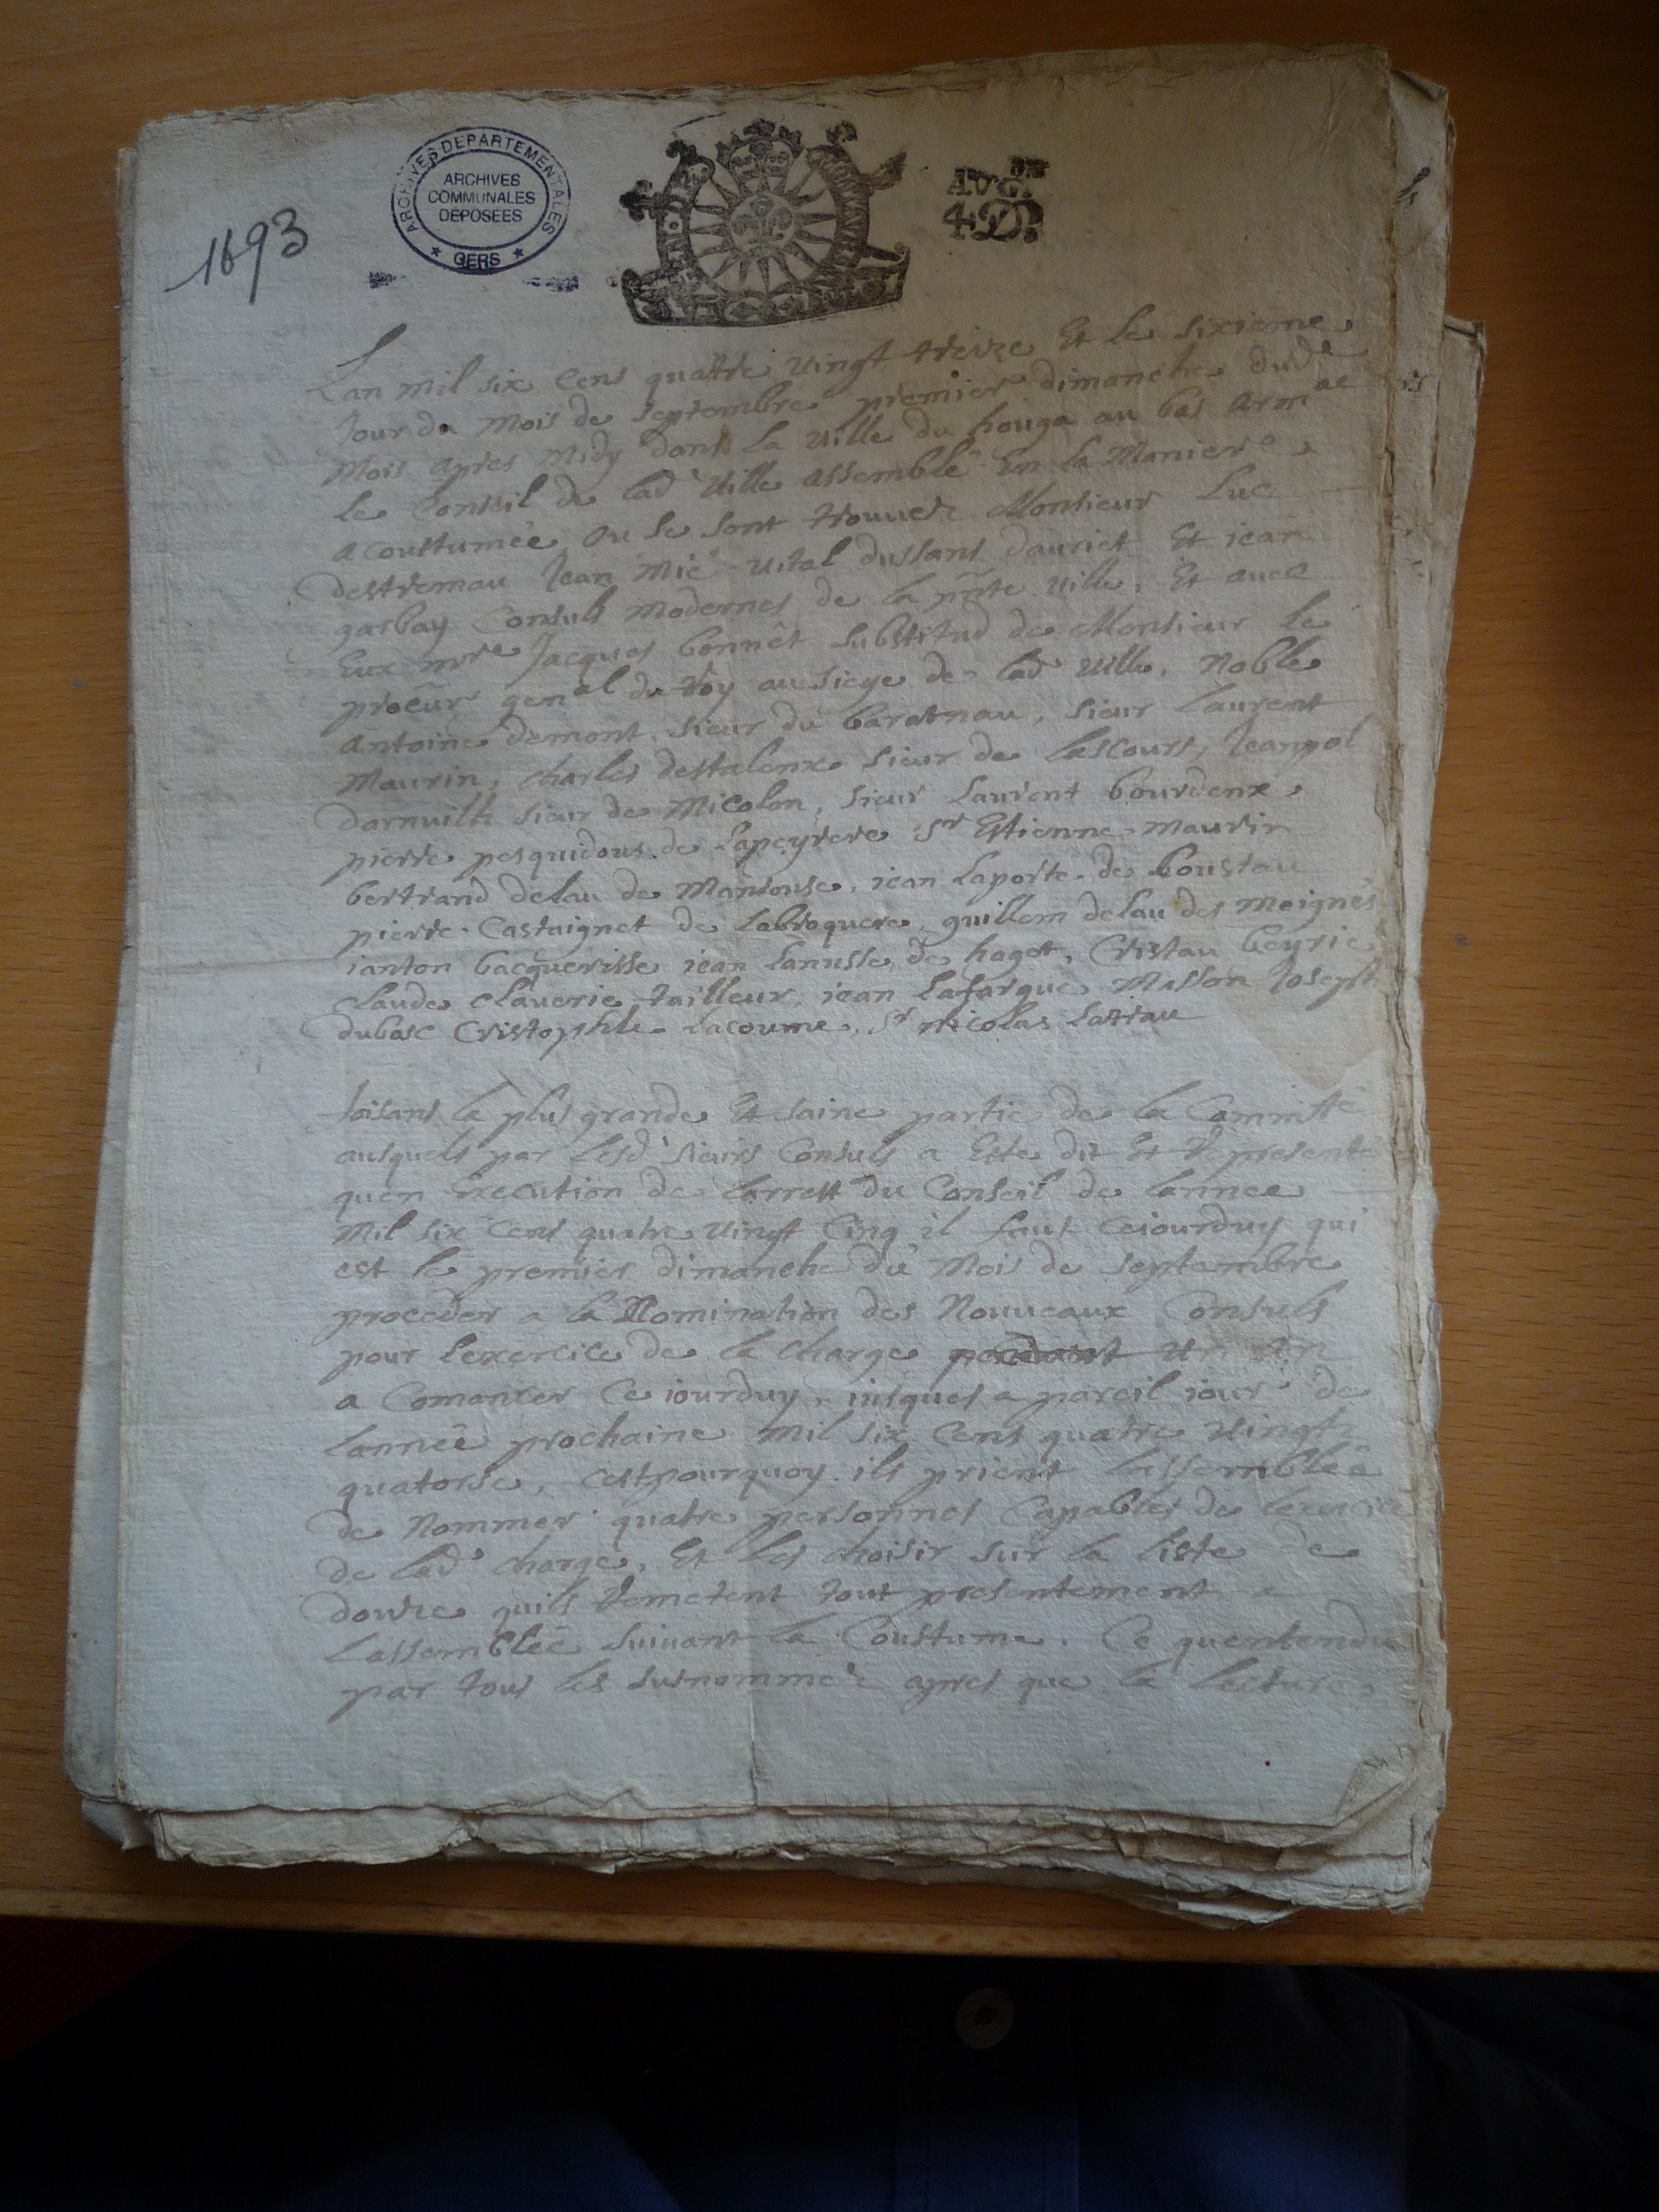 1693
ARCHIVES DEPARTEMENTALES
ARCHIVES
COMMUNALES
DEPOSEES
GERS
AUG.on
4 D.
Lan mil six Cens quattre vingt treize Et le sixieme
Jour du Mois de septembre premier dimanche dud.
Mois apres midy dans la ville du houga au bas Armac
le Conseil de lad ville assemblé En la Maniere
acoustumée ou se sont trouvez Monsieur Luc
destremau Jean Mic vital dussans dauriet Et iean
garbay Consuls modernes de la pnte ville, Et avec
Eux mre Jacques bonnêt substitud de Monsieur le
proceur genal du Roy au siege de lad ville, Noble
Antoine demont sieur du baratnau, sieur laurent
Maurin, charles destalenx sieur de lascours, Jeanpol
darnuilh sieur de Micolon, sieur laurent bourdenx,
pierre pesquidous de Lapeyrere sr Estienne maurin
bertrand delau de Mandouse, iean laporte de boustau
pierre Castaignet de Labroquere guillem delau des moignes
ianton bacquerisse iean lanusse de hagot, Cristau beyrie
claude claverie tailleur, iean lafargue Masson Joseph
dubasc Cristophle lacoume, sr nicolas lattau
faisans la plus grande Et saine partie de la Commté
ausquels par lesd sieurs Consuls a Este dit Et representé
quen Execution de larrest du Conseil de lannee
Mil six cens quatre vingt Cinq il faut ceiourduy qui
est le premier dimanche du Mois de septembre
proceder a la Nomination des Nouveaux Consuls
pour lexercice de la charge pendant un an
a Comancer Ce iourduy, iusques a pareil iour de
lannée prochaine mil six Cens quatre vingtz
quatorse, cestpourquoy ils prient lassemblée
de Nommer quatre personnes Capables de lexercice
de lad charge, Et les choisir sur la liste de
douze quils remetent tout presentement a
lassemblée suivant la Coustume. Ce quentendu
par tous les susnommez apres que la lecture